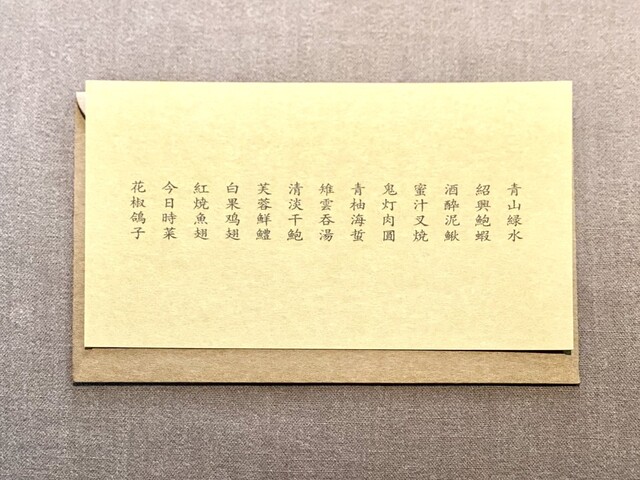 青山緑水
紹興鮑蝦
酒醉泥鰍
蜜汁叉焼
鬼灯肉圓
青柚海蜇
雉雲吞湯
清淡干鮑
芙蓉鮮鱧
白果鸡翅
紅燒魚翅
今日時菜
花椒鴿子